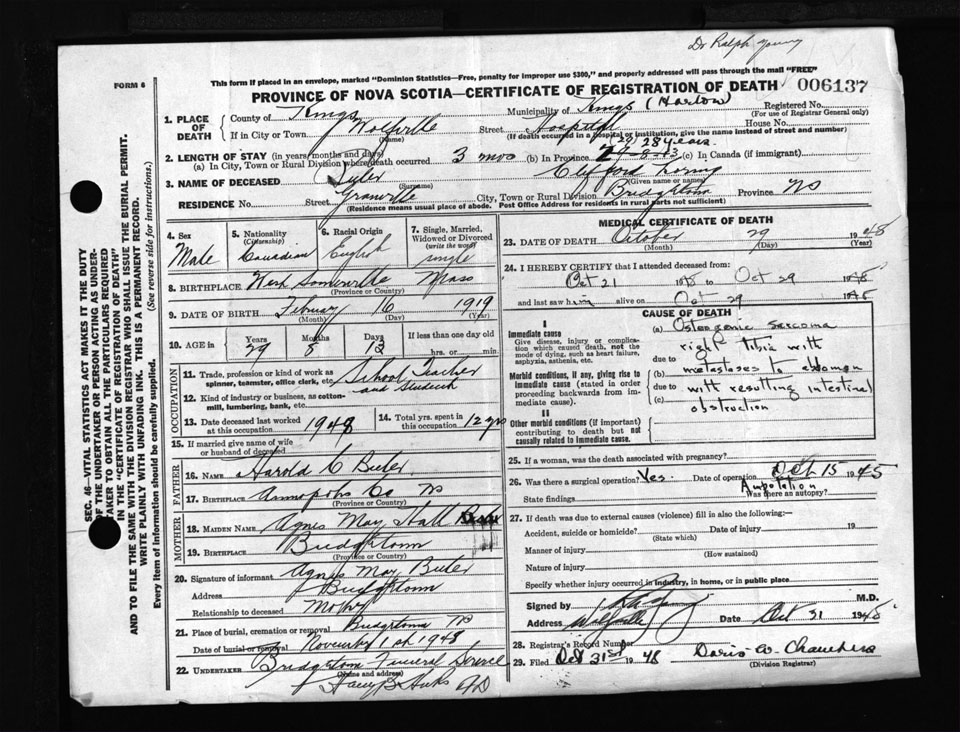 Dr Ralph Young
FORM 6
This form if placed in an envelope, marked "Dominion Statistics—Free, penalty for improper use $300," and properly addressed will pass through the mail "FREE"
006137
PROVINCE OF NOVA SCOTIA—CERTIFICATE OF REGISTRATION OF DEATH
SEC. 46—VITAL STATISTICS ACT MAKES IT THE DUTY
OF THE UNDERTAKER OR PERSON ACTING AS UNDER-
TAKER TO OBTAIN ALL THE PARTICULARS REQUIRED
IN THE "CERTIFICATE OF REGISTRATION OF DEATH"
AND TO FILE THE SAME WITH THE DIVISION REGISTRAR WHO SHALL ISSUE THE BURIAL PERMIT.
WRITE PLAINLY WITH UNFADING INK. THIS IS A PERMANENT RECORD.
Every item of Information should be carefully supplied. (See reverse side for instructions.)
1. PLACE OF DEATH
County of Kings
Municipality of Kings (Horton)
Registered No.
(For use of Registrar General only)
If in City or Town Wolfville Street Hospital House No.
(Name) (If death occurred in a hospital or institution, give the name instead of street and number)
2. LENGTH OF STAY (in years, months and days) 28 years
(a) In City, Town or Rural Division where death occurred 3 mos (b) In Province (c) In Canada (if immigrant)
3. NAME OF DECEASED
(Surname) (Given name or names)
RESIDENCE No. Street Granville City, Town or Rural Division Bridgetown Province NS
(Residence means usual place of abode. Post Office Address for residents in rural parts not sufficient)
4. Sex
Male
5. Nationality
(Citizenship)
Canadian
6. Racial Origin
English
7. Single, Married, Widowed or Divorced
(write the word)
single
8. BIRTHPLACE West Somerville Mass
(Province or Country)
9. DATE OF BIRTH February 16 1919
(Month) (Day) (Year)
10. AGE in
Years Months Days If less than one day old
29 8 13 hrs. or min.
OCCUPATION
11. Trade, profession or kind of work as School Teacher
spinner, teamster, office clerk, etc. and Student
12. Kind of industry or business, as cotton-
mill, lumbering, bank, etc.
13. Date deceased last worked
at this occupation 1948
14. Total yrs. spent in
this occupation 12 yrs
15. If married give name of wife
or husband of deceased
FATHER
16. NAME Harold C
17. BIRTHPLACE Annapolis Co NS
(Province or Country)
MOTHER
18. MAIDEN NAME Agnes May Hall
19. BIRTHPLACE Bridgetown
(Province or Country)
20. Signature of informant Agnes May
Address Bridgetown
Relationship to deceased Mother
21. Place of burial, cremation or removal Bridgetown NS
Date of burial or removal November 1st 1948
22. UNDERTAKER Bridgetown Funeral Service
(Name and address)
MEDICAL CERTIFICATE OF DEATH
23. DATE OF DEATH October 29 1948
(Month) (Day) (Year)
24. I HEREBY CERTIFY that I attended deceased from:
Oct 21 1948 to Oct 29 1948
and last saw him alive on Oct 29 1948
CAUSE OF DEATH
I
Immediate cause
Give disease, injury or complica-
tion which caused death, not the
mode of dying, such as heart failure,
asphyxia, asthenia, etc.
Morbid conditions, if any, giving rise to
immediate cause (stated in order
proceeding backwards from im-
mediate cause).
II
Other morbid conditions (if important)
contributing to death but not
causally related to immediate cause.
(a) Osteogenic sarcoma
right tibia with
due to
(b) metastases to abdomen
due to with resulting intestinal
(c) obstruction
25. If a woman, was the death associated with pregnancy?
26. Was there a surgical operation? Yes. Date of operation Oct 15 1945
State findings Amputation Was there an autopsy?
27. If death was due to external causes (violence) fill in also the following:—
Accident, suicide or homicide? Date of injury 19
(State which)
Manner of injury
(How sustained)
Nature of injury
Specify whether injury occurred in industry, in home, or in public place
Signed by M.D.
Address Wolfville Date Oct 31 1948
28. Registrar's Record Number
29. Filed Oct 31st 1948 Doris W. Chambers
(Division Registrar)